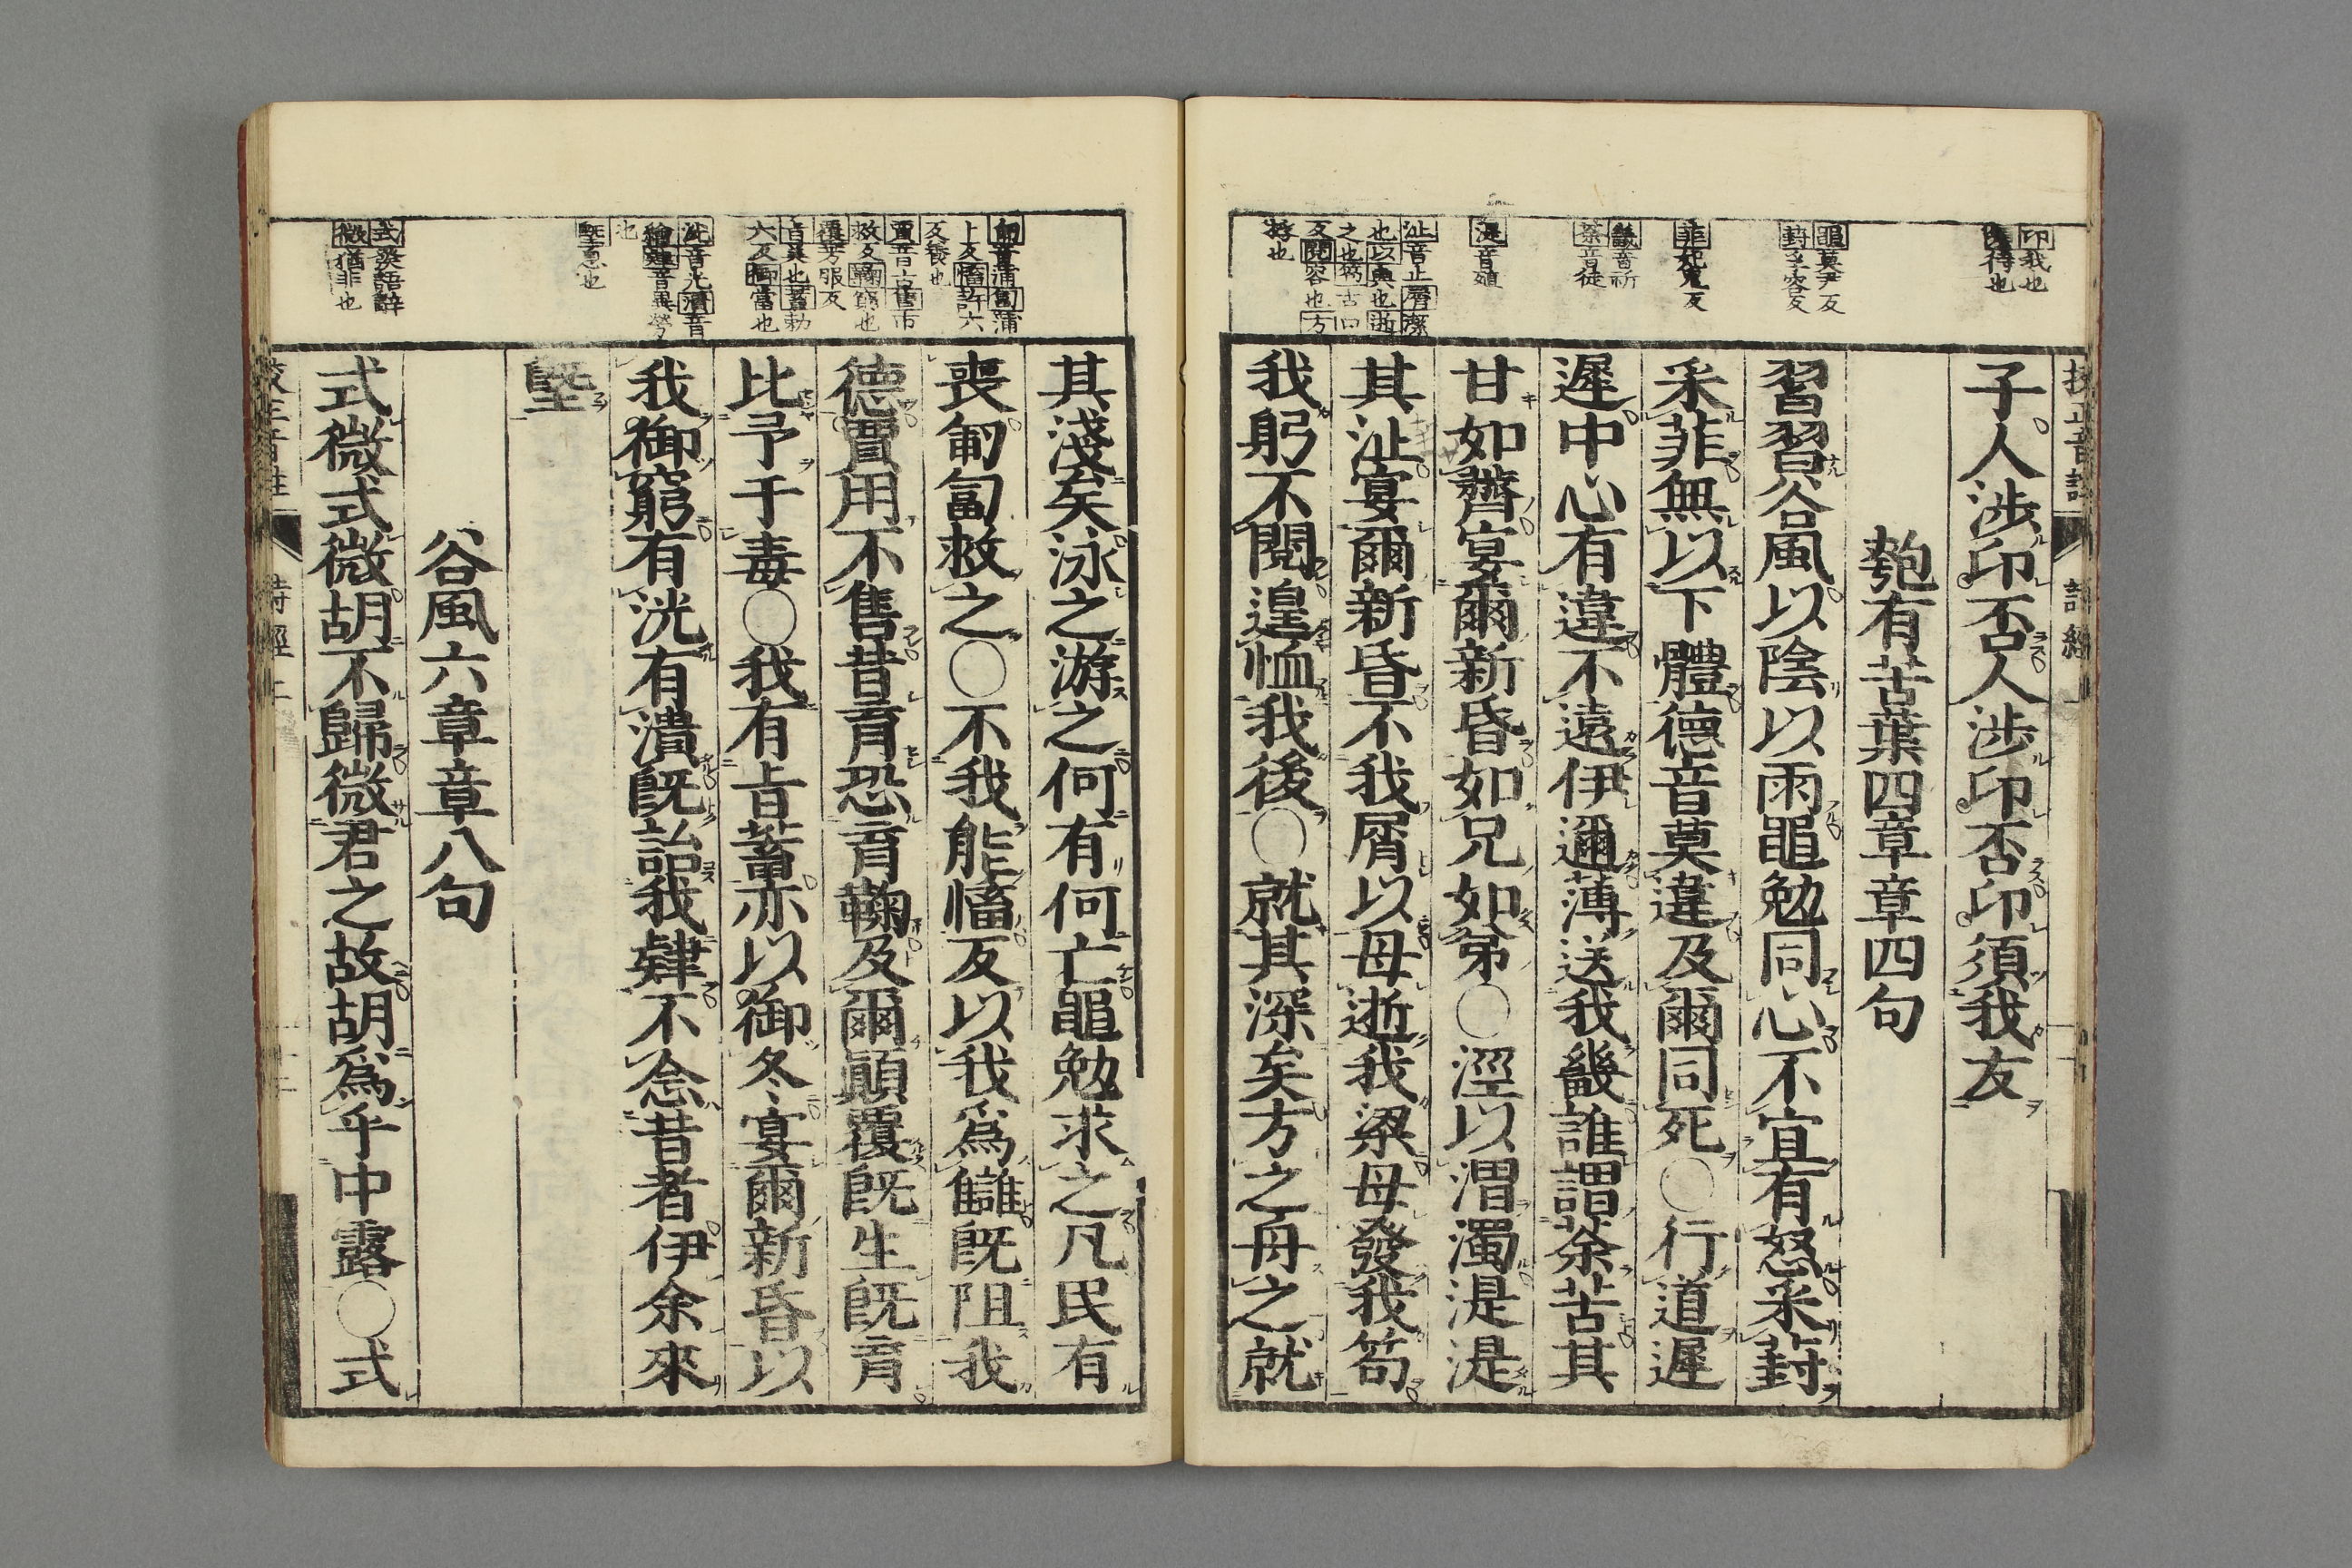 卬我也
須待也
黽莫尹反
葑孚容反
菲妃鬼反
畿音祈
荼音徒
湜音殖
沚音止屑潔
也以與也逝
之也笱古口
反閱容也方
桴也
子人涉卬否人涉卬否卬須我友
匏有苦葉四章章四句
習習谷風以陰以雨黽勉同心不宜有怒采葑
采菲無以下體德音莫違及爾同死○行道遲
遲中心有違不遠伊邇薄送我畿誰謂荼苦其
甘如薺宴爾新昏如兄如弟○涇以渭濁湜湜
其沚宴爾新昏不我屑以毋逝我梁毋發我笱
我躬不閱遑恤我後○就其深矣方之舟之就
匍音蒲匐蒲
卜反慉許六
反養也
賈音古售市
救反鞠窮也
覆芳服反
旨美也蓄勅
六反御當也
洸音光潰音
也
塈息也
式發語辭
微猶非也
其淺矣泳之游之何有何亡黽勉求之凡民有
喪匍匐救之○不我能慉反以我爲讎旣阻我
德賈用不售昔育恐育鞠及爾顚覆旣生旣育
比予于毒○我有旨蓄亦以御冬宴爾新昏以
我御窮有洸有潰旣詒我肄不念昔者伊余來
塈
谷風六章章八句
式微式微胡不歸微君之故胡爲乎中露○式
詩經二